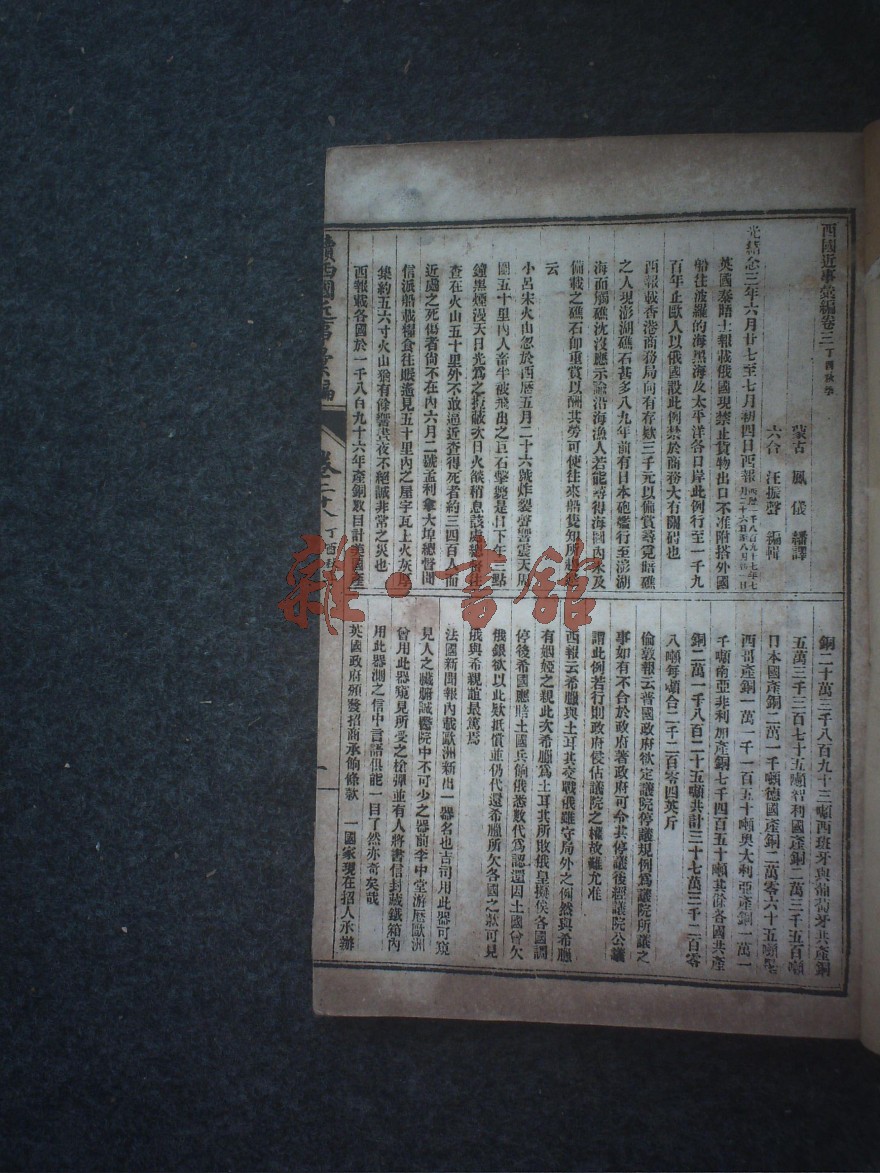 西國近事彙編卷三 丁酉秋季
蒙古 鳳儀 繙譯
六合 汪振聲 編輯
光緒念三年六月廿七至七月初四日西報
英國泰晤士報載俄國現禁止貨物出口不准附搭外國
船往波羅的海黑海及太平洋各口岸此例行至一千九
百年止歐人以俄國設此例禁於商務大有關碍也
西報載香港商務局向有存欵三千元以備賞尋覓暗礁
之人現澎湖礁石甚多八九年前有日本砲艦行至澎湖
海面觸礁沈沒應示諭沿海漁人若能尋得海圖內未及
備載之礁石卽重賞以酬其勞可使往來船隻知所趨避
云
小呂宋火山忽於西歷五月二十六號炸裂聲響震天周
圍五十里內人畜半被飛出之巨石擊斃是日下午三點
鐘黑煙漫天日光爲之掩蔽次日火燄稍息該處總督往
查在火山五十里外不敢逼近查得死者約三四百人而
近處之死傷者尙不在內六月二號孟利拿大埠總督聞
信派船載糧食往賑遙見五十里內之屋宇瓦上火灰厚
集約五六寸火山猶有餘響晝夜不絕誠非常之災也
西報載各國於一千八百九十六年產銅數目計美國產
銅二十萬三千八百九十三噸西班牙與葡萄牙共產銅
五萬三千三百七十五噸智利國產銅二萬三千五百噸
日本國產銅二萬一千噸德國產銅二萬零六十五噸墨
西哥產銅一萬一千一百五十噸奧大利亞產銅一萬一
千噸南亞非利加產銅七千四百五十噸其餘各國共產
銅二萬一千八百二十五噸共計三十七萬三千二百零
八噸每噸合二千二百零四英斤
倫敦報云普國政府欲定議院停議規例爲議院所議之
事如有不合於政府著政府可令其停議後經議院公議
謂此例若行則政府侵佔議院之權故難允准
西報云希臘與土耳其交戰俄雖守局外之例然與希臘
有姻婭之親此次希臘爲土耳其所敗俄皇擬俟各國調
停後希國應賠土國兵餉俄悉數代爲認還因土國曾欠
俄銀欲以此欵抵償並仍代還希臘所欠各國之欵可見
俄與希親誼最篤焉
法國新聞報內載歐洲新出一器名也吉司用此器可窺
見人之臟腑誠醫院中不可少之器前李中堂游歷歐洲
曾用此器窺見所受之槍彈並有人將書信封藏鐵箱內
用此器測之信中言語俱能一目了然亦奇矣哉
英國政府頒發招商承餉條款 一國家現在招人承辦
續西國近事彙編
卷二十八 丁酉
一
雜·書館